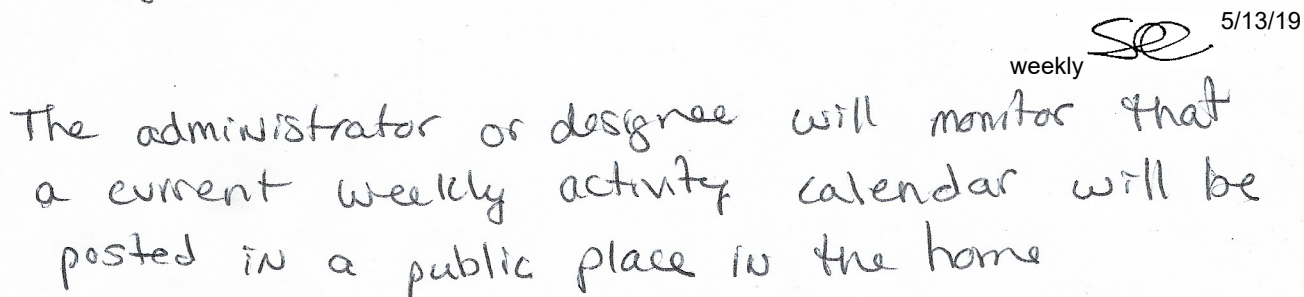 5/13/19
weekly SE
The administrator or designee will monitor that
a current weekly activity calendar will be
posted in a public place in the home